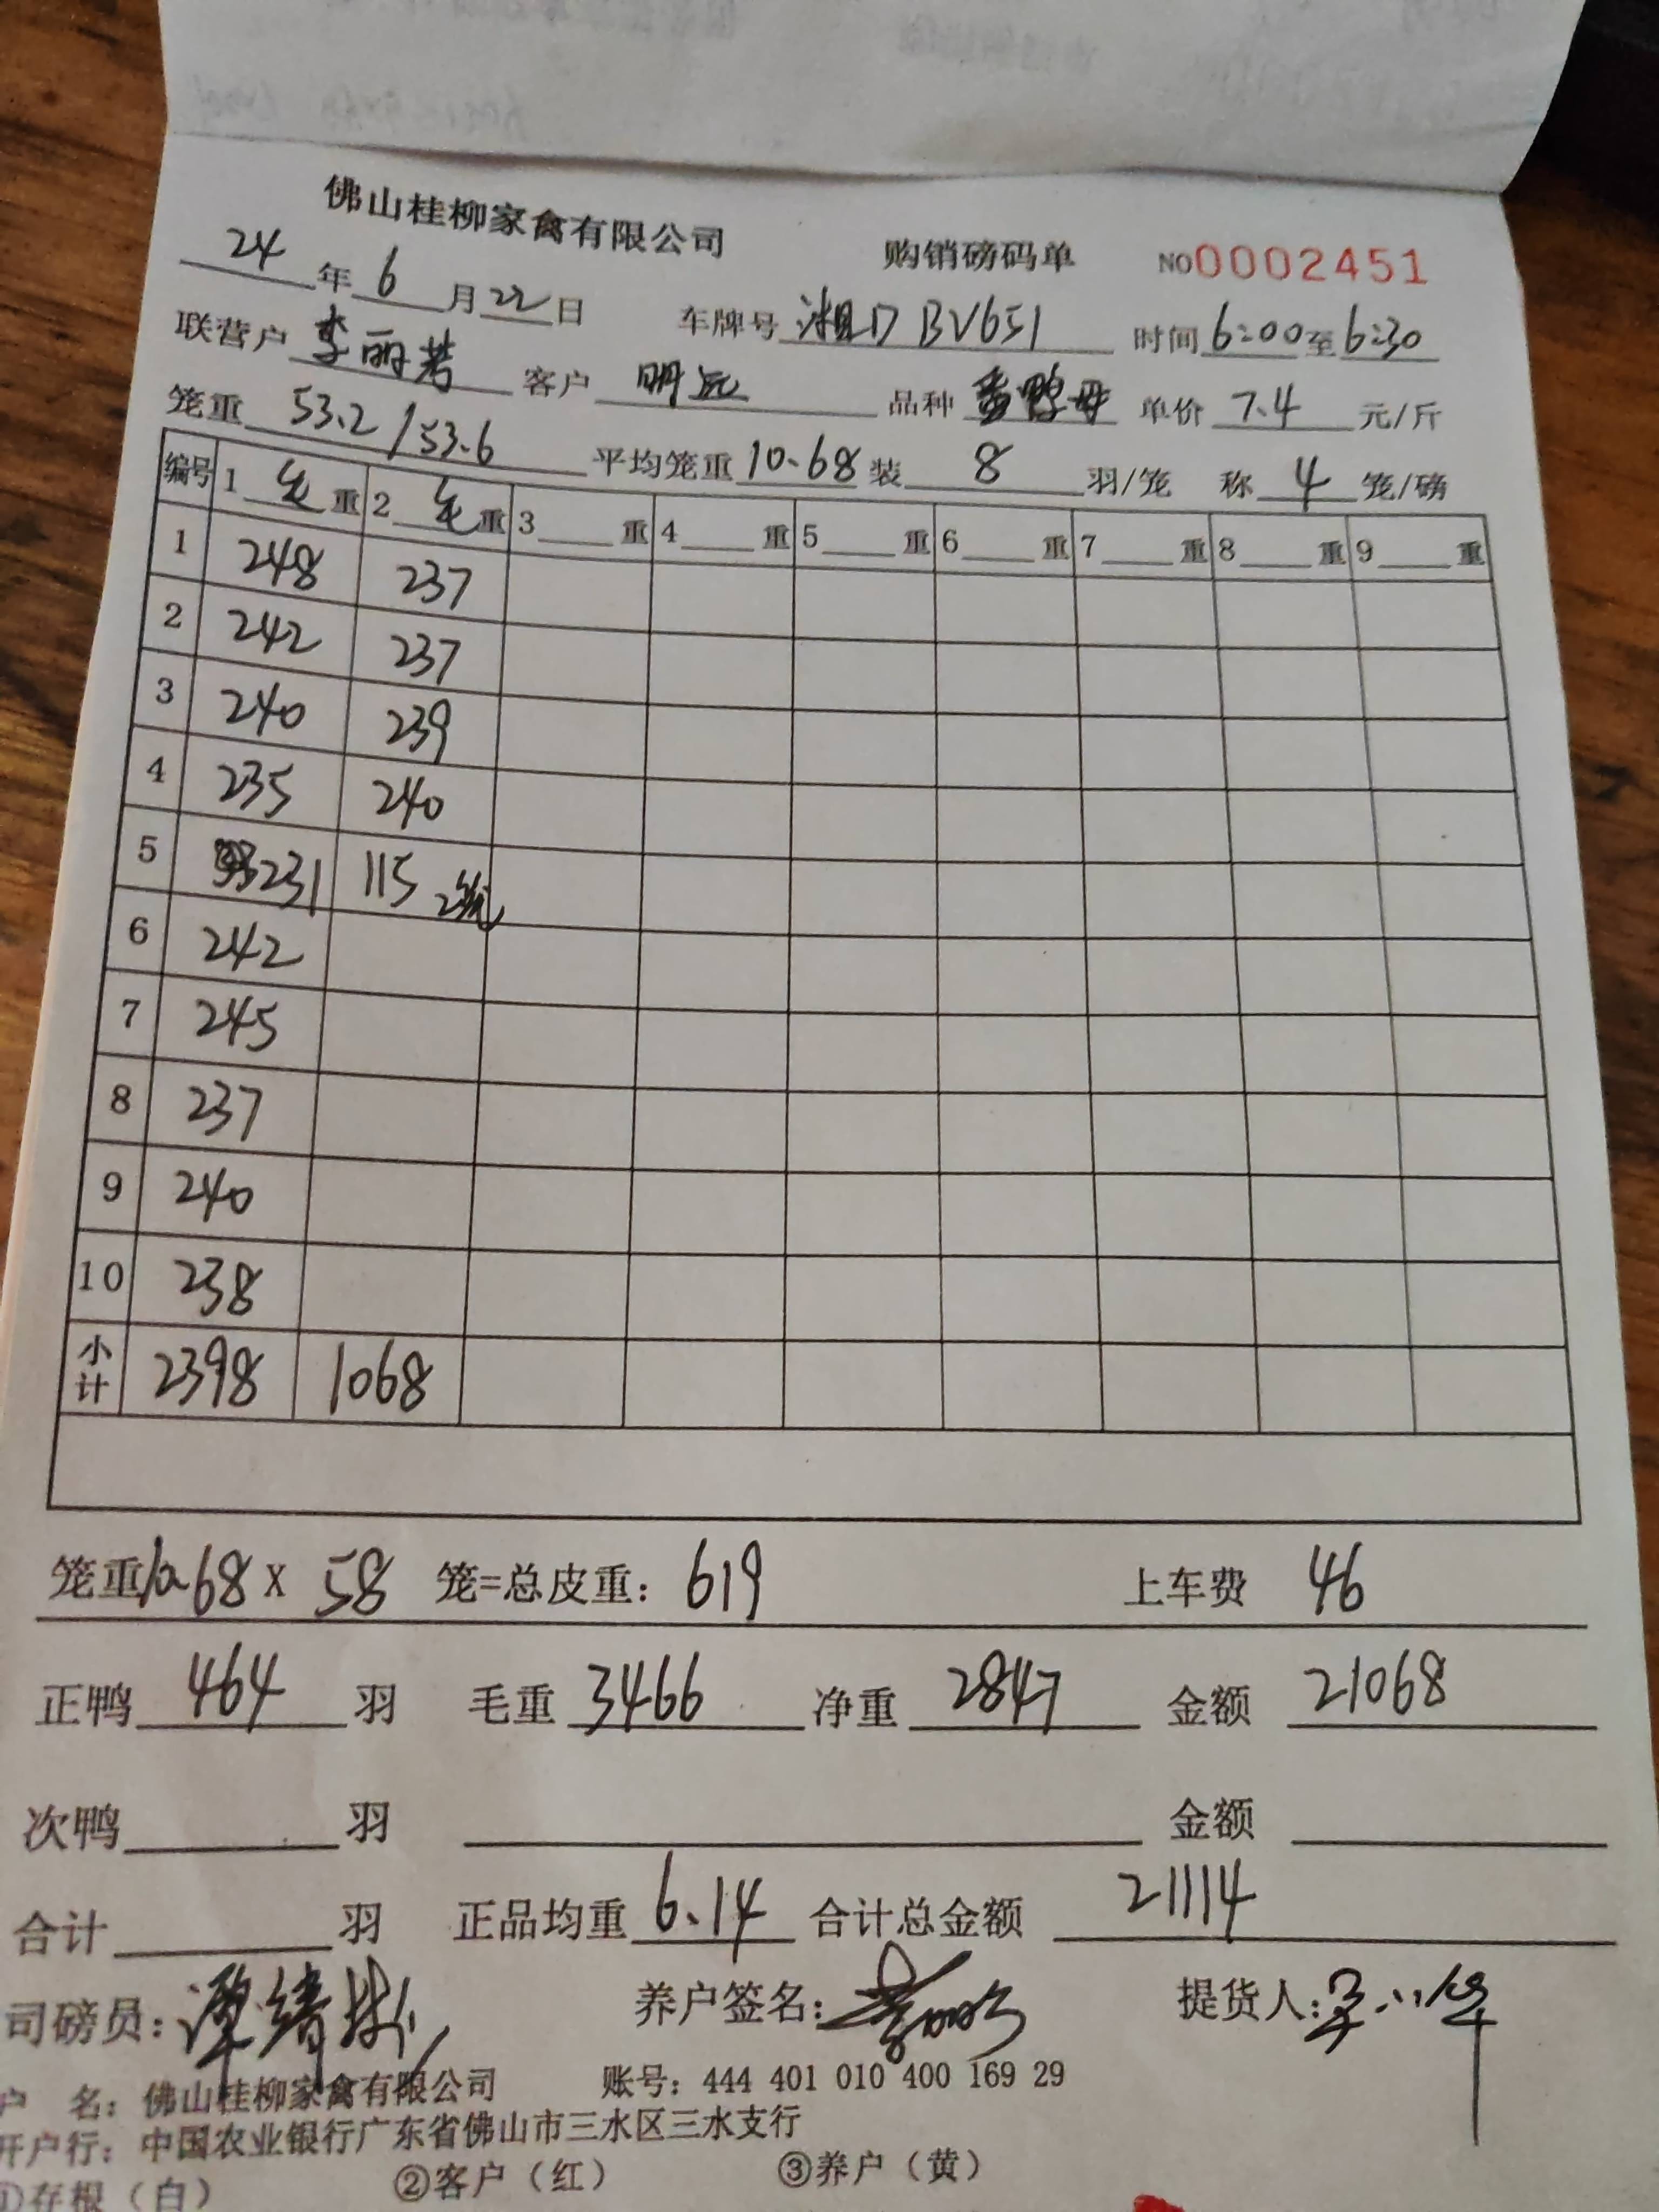 佛山桂柳家禽有限公司 购销磅码单 NO0002451
24年6月22日 车牌号 湘D BV651 时间 6:00至6:30
联营户 李丽芳 客户 明远 品种 番鸭母 单价 7.4 元/斤
笼重 53.2/53.6 平均笼重 10.68 装 8 羽/笼 称 4 笼/磅
编号 1 毛 重 2 毛 重 3 重 4 重 5 重 6 重 7 重 8 重 9 重
1 248 237
2 242 237
3 240 239
4 235 240
5 231 115 2笼
6 242
7 245
8 237
9 240
10 238
小计 2398 1068
笼重10.68 X 58 笼=总皮重: 619 上车费 46
正鸭 464 羽 毛重 3466 净重 2847 金额 21068
次鸭 羽 金额
合计 羽 正品均重 6.14 合计总金额 21114
司磅员: 养户签名: 提货人:
户 名: 佛山桂柳家禽有限公司 账号: 444 401 010 400 169 29
开户行: 中国农业银行广东省佛山市三水区三水支行
①存根（白） ②客户（红） ③养户（黄）